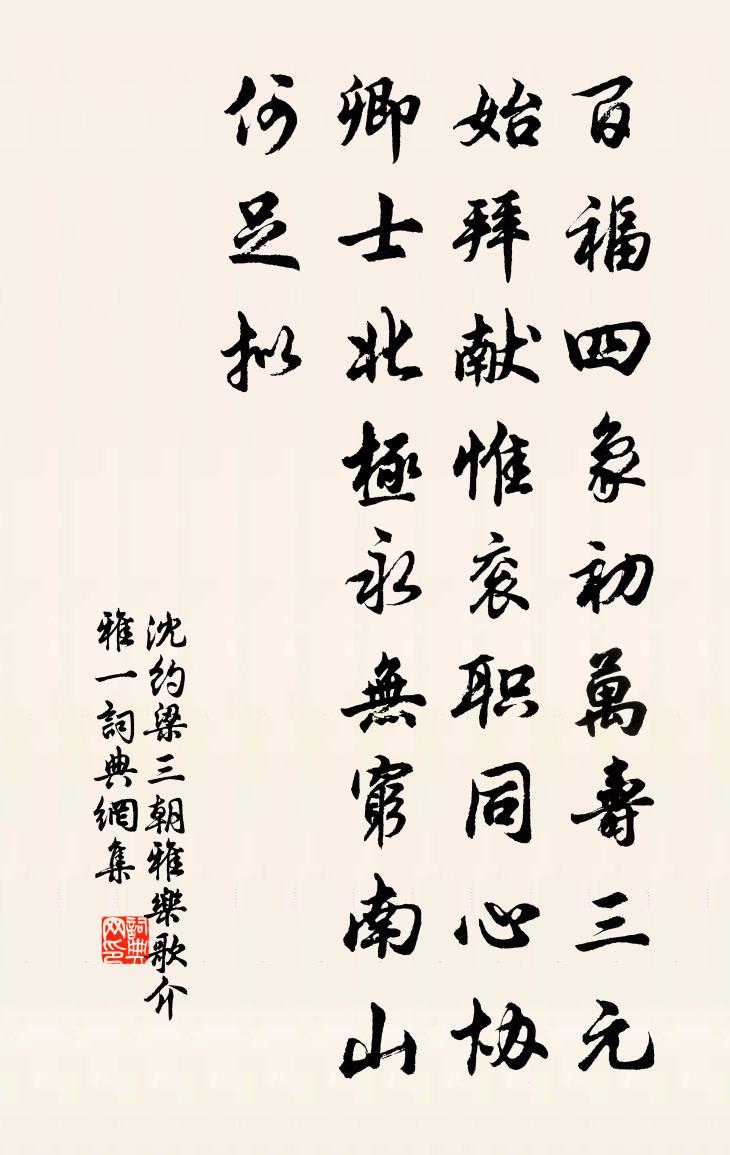 百福四象初萬壽三元
始拜献惟衮职同心协
卿士北極永無窮南山
何足拟
沈約梁三朝雅樂歌介
雅一詞典網集
詞典网印